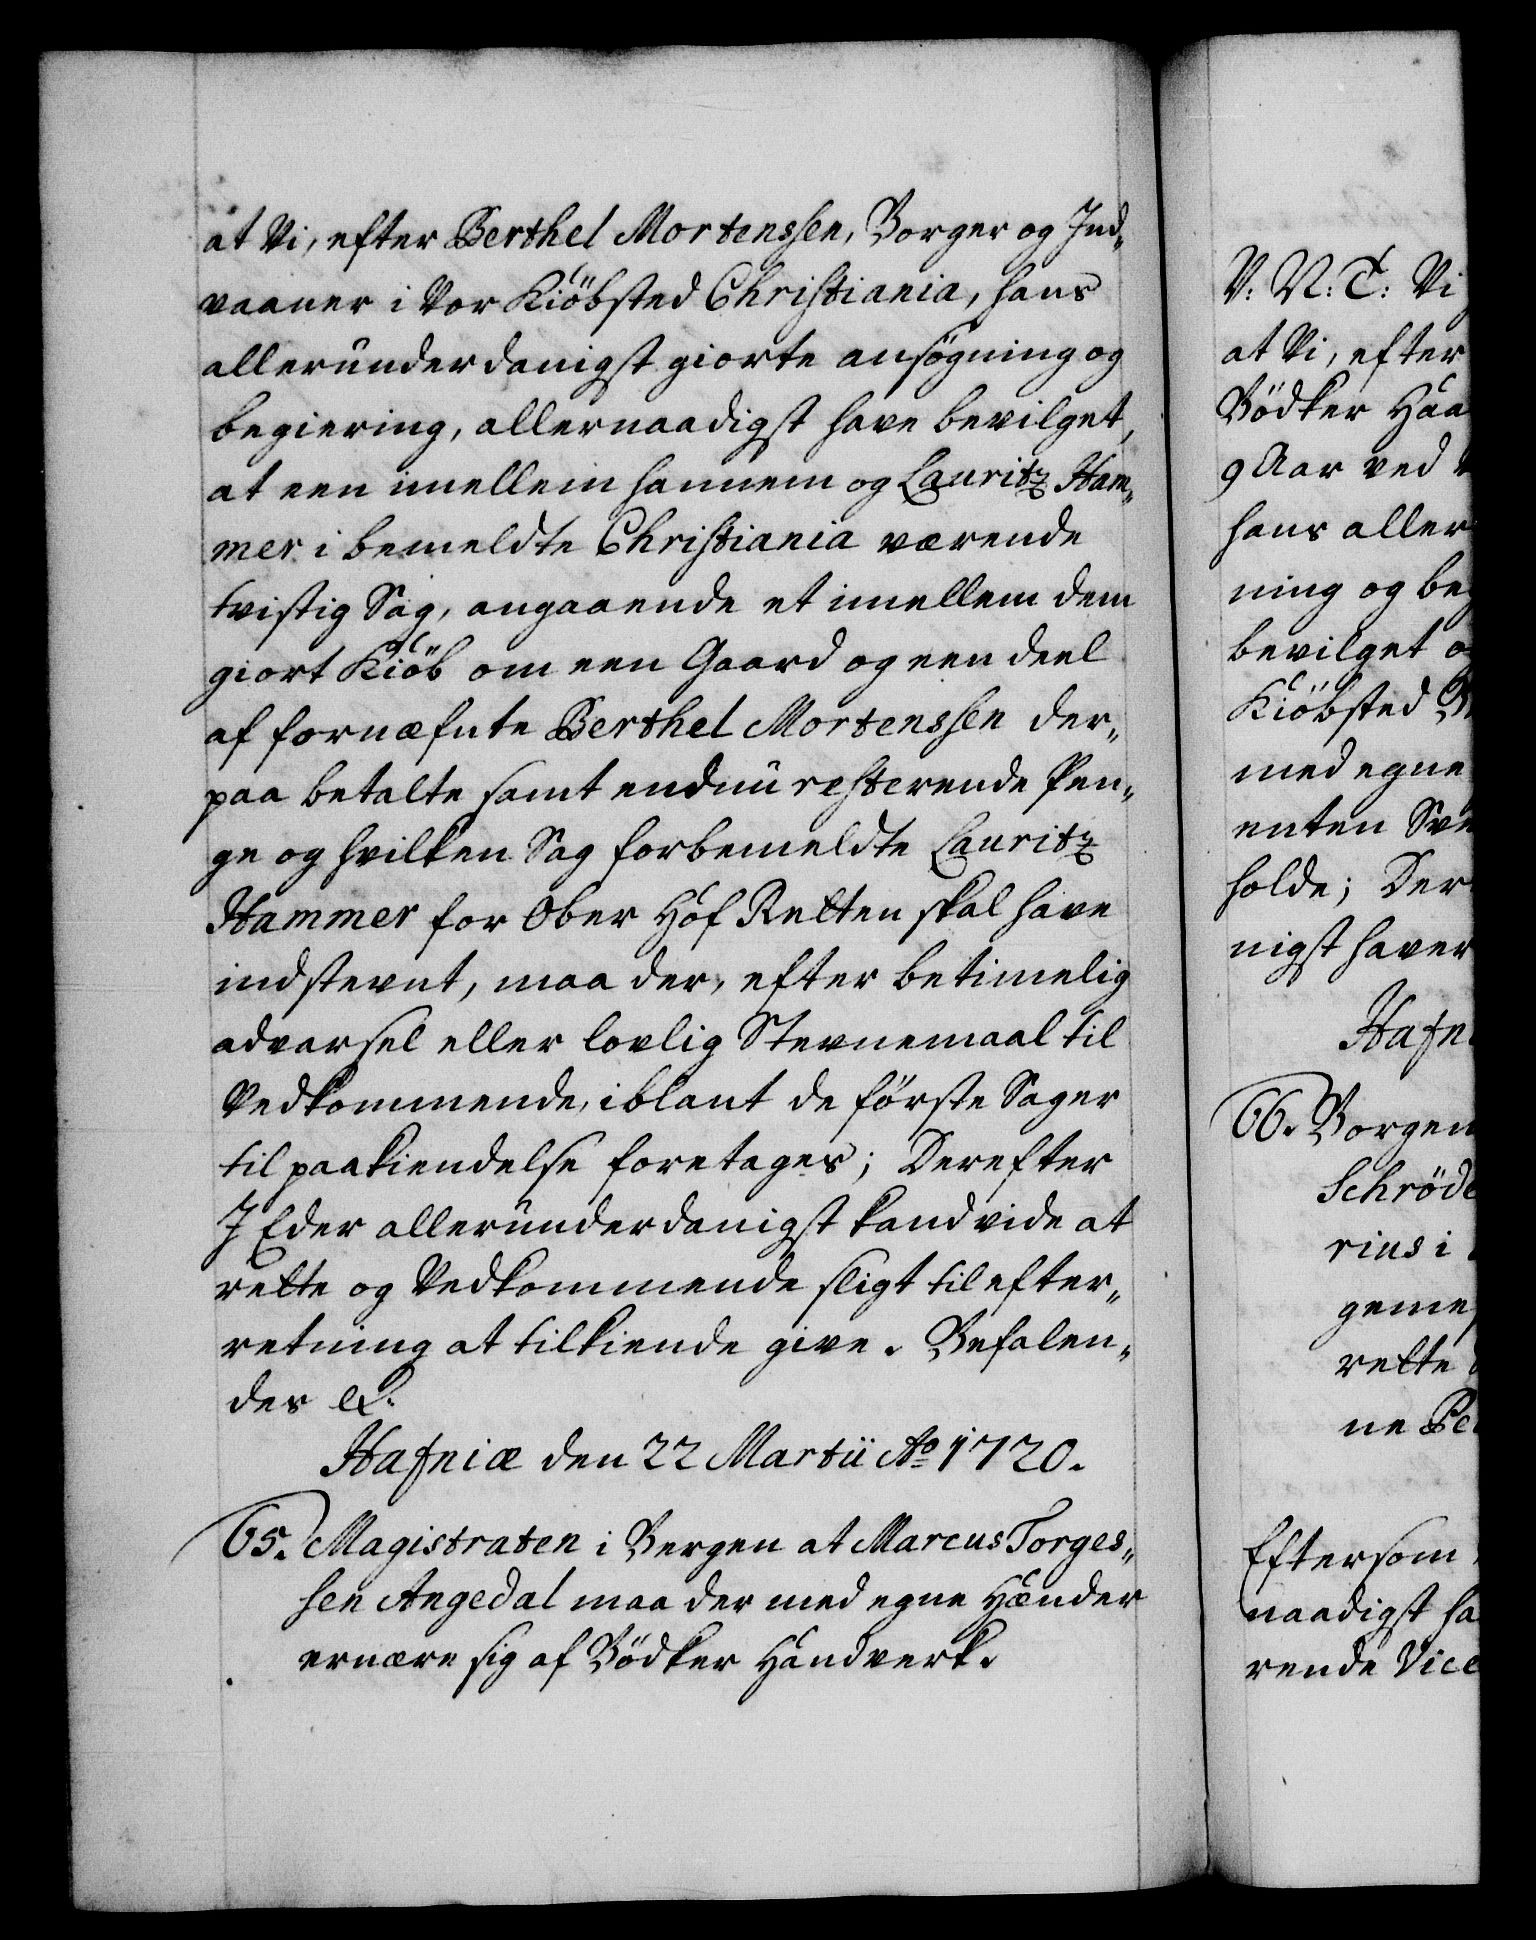 at Vi, efter Berthel Mortenssen, Borger og Ind„
vaaner i Vor Kiöbsted Christiania, hans
allerunderdanigst giorte ansögning og
begiering, allernaadigst have bevilget,
at een imellem hannem og Lauritz Ham„
mer i bemeldte Christiania værende
tvistig Sag, angaaende et imellem dem
giort Kiöb om een Gaard og een deel
af fornæfnte Berthel Mortenssen der„
paa betalte samt endnu resterende Pen„
ge og hvilken Sag forbemeldte Lauritz
Hammer for Ober Hof Retten skal have
indstevnt, maa der, efter betimelig
advarsel eller lovlig Stevnemaal til
Vedkommende, iblant de förste Sager
til paakiendelse foretages; Derefter
I Eder allerunderdanigst kand vide at
rette og Vedkommende sligt til efter„
retning at tilkiende give. Befalen„
des etc.
Hafniæ den 22 Martii Ao 1720.
65. Magistraten i Bergen at Marcus Torges„
sen Angedal maa der med egne Hænder
ernære sig af Bödker Haandverk.
V: N: T: Vi
at Vi, efter
Bödker Haa
9 Aar ved
hans aller
ning og beg
bevilget o
Kiöbsted
med egne
enten Sve
holde; Der
nigst haver
Hafn
66. Borgem
Schröde
rius i
geme
rette
ne Pe
Eftersom
naadigst ha
rende Vice